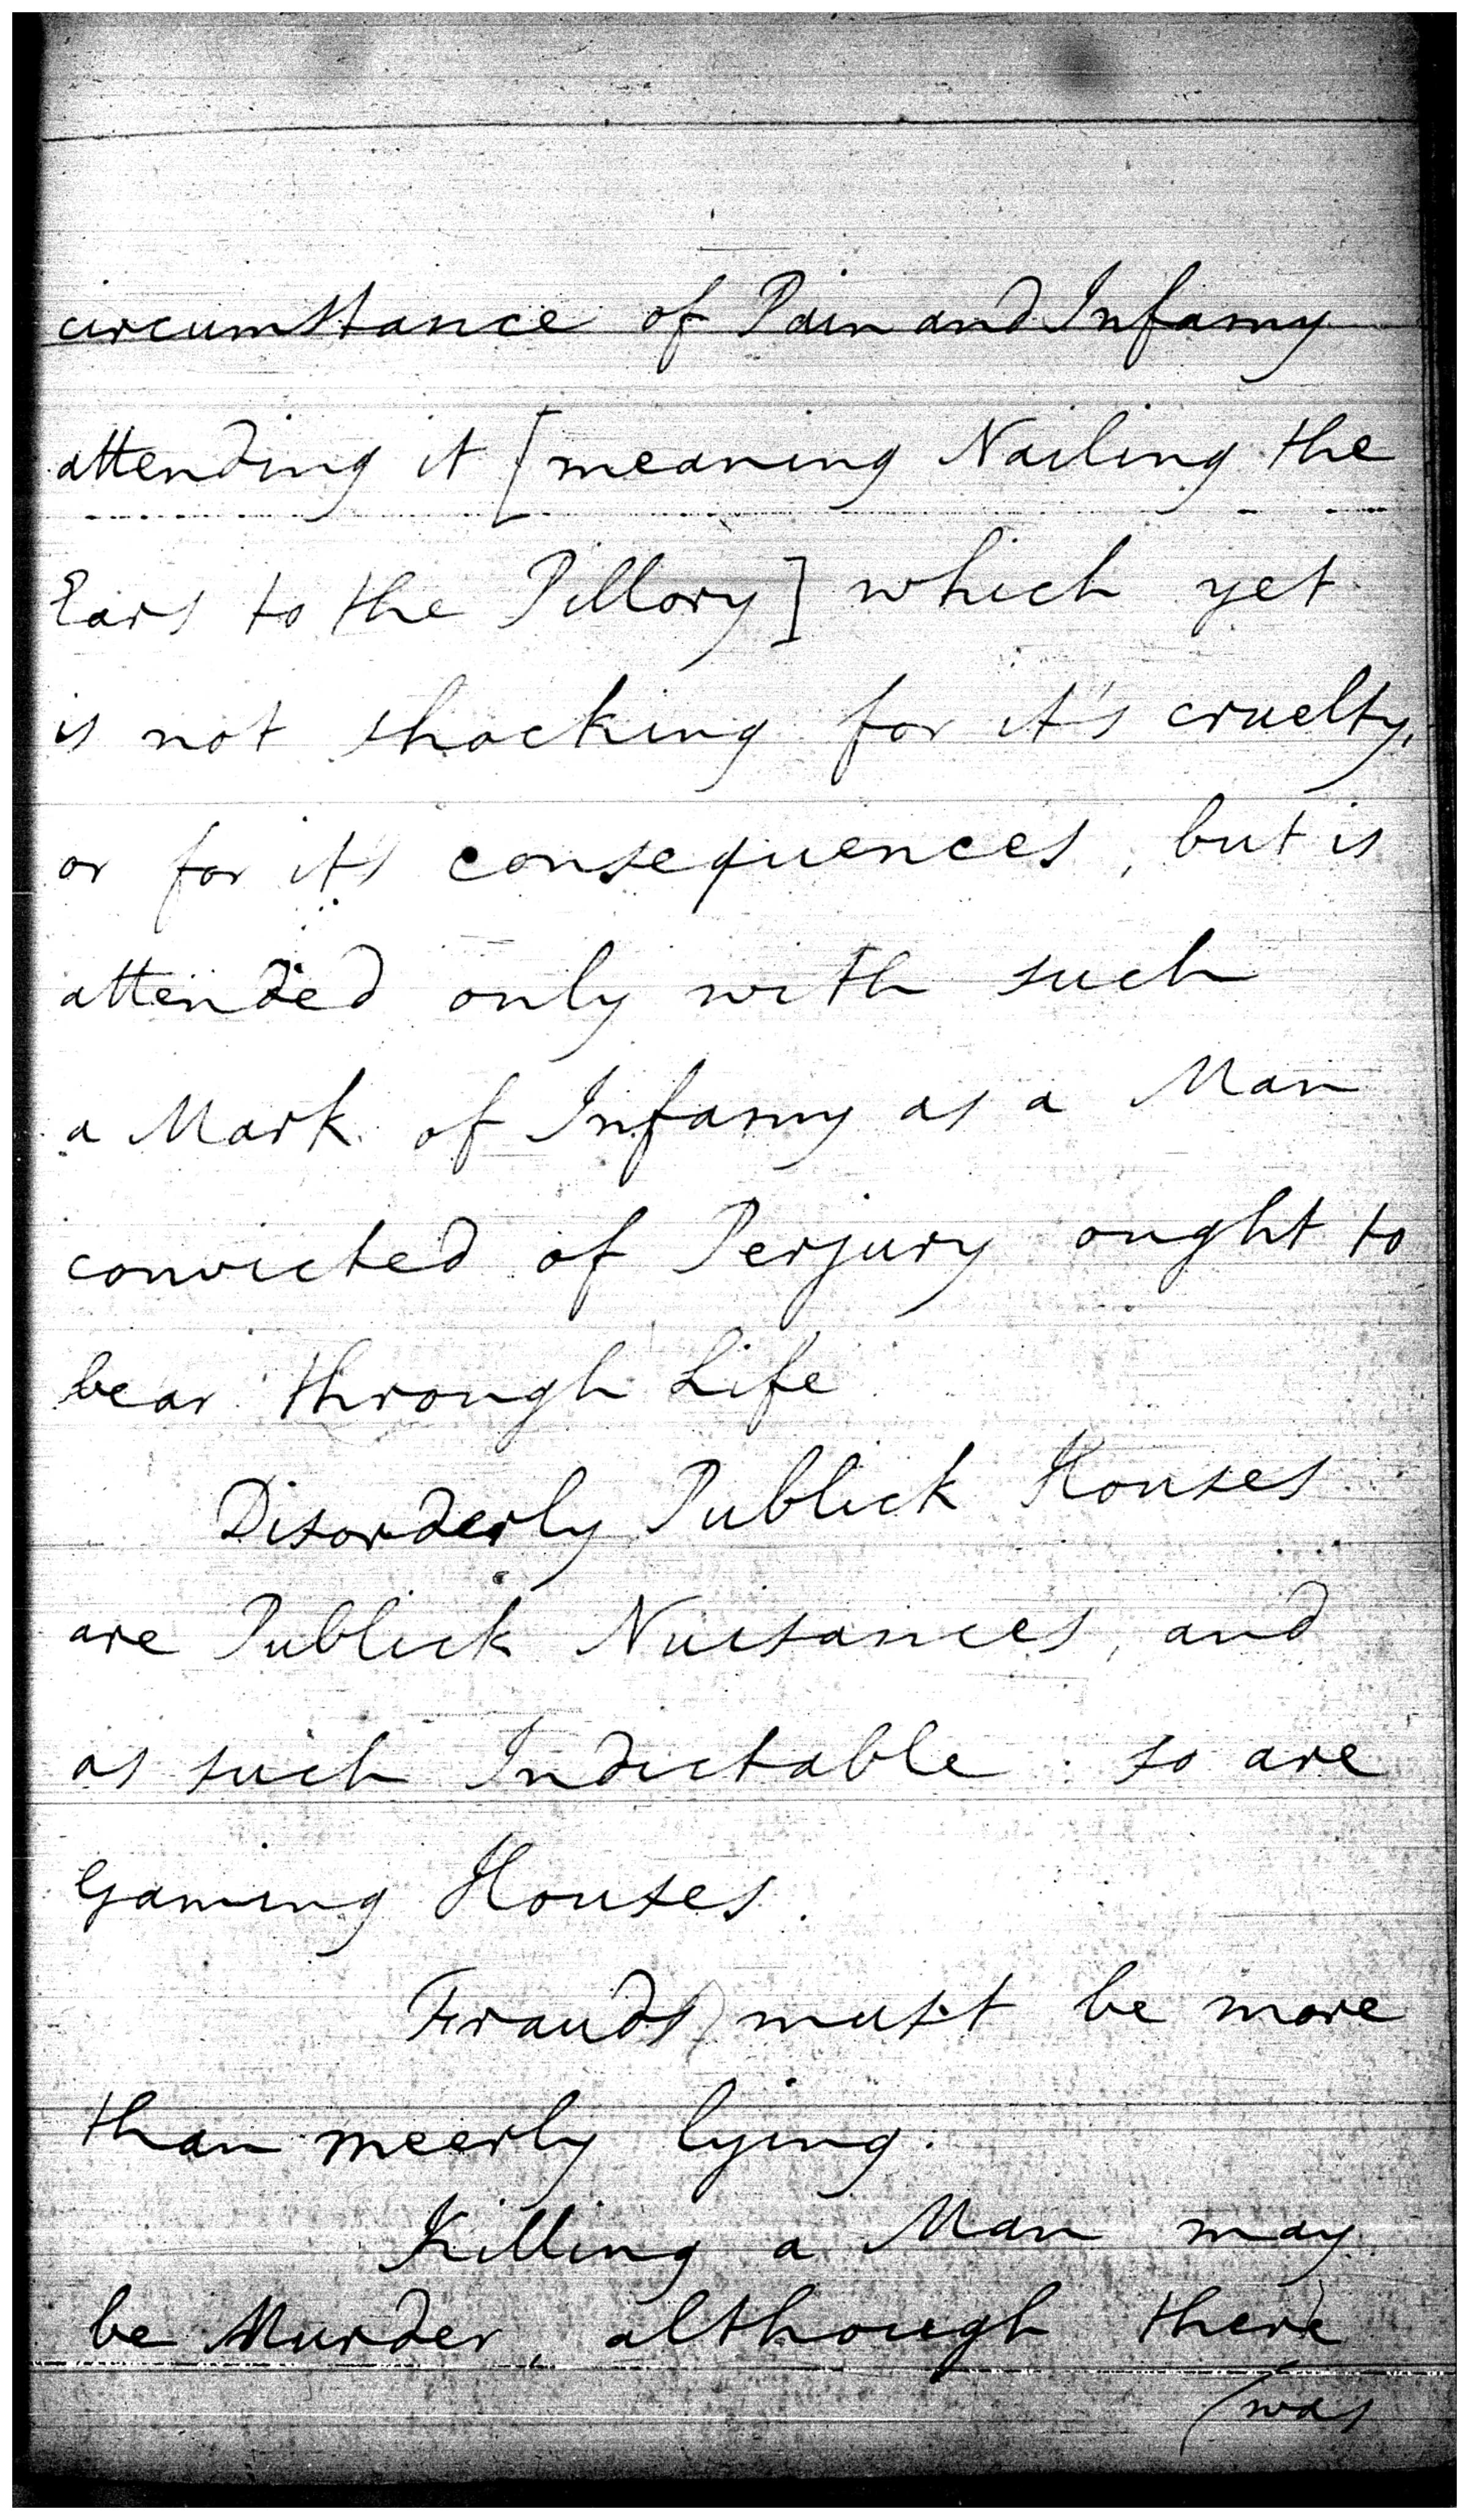 circumstance of Pain and Infamy
attending it [meaning Nailing the
Ears to the Pillory] which yet
is not shocking for it's cruelty,
or for it's consequences, but is
attended only with such
a Mark of Infamy as a Man
convicted of Perjury ought to
bear through Life
Disorderly Publick Houses
are Publick Nuisances, and
as such Indictable : so are
Gaming Houses.
Frauds must be more
than meerly lying.
Killing a Man may
be Murder, although there
(was